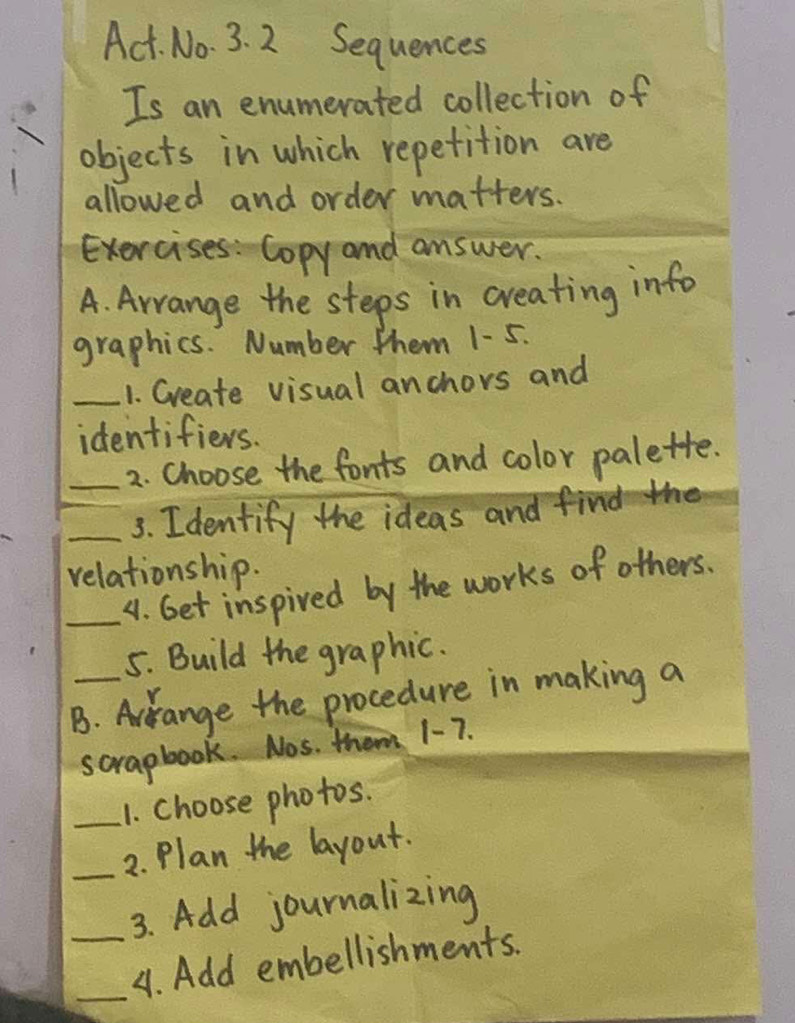 Act. No. 3.2 Sequences
Is an enumerated collection of
objects in which repetition are
allowed and order matters.
Exercises: Copy and answer.
A. Arrange the steps in creating info
graphics. Number them 1-5.
___1. Create visual anchors and
identifiers.
___2. Choose the fonts and color palette.
___3. Identify the ideas and find the
relationship.
___4. Get inspired by the works of others.
___5. Build the graphic.
B. Arrange the procedure in making a
scrapbook. Nos. them 1-7.
___1. Choose photos.
___2. Plan the layout.
___3. Add journalizing
___4. Add embellishments.